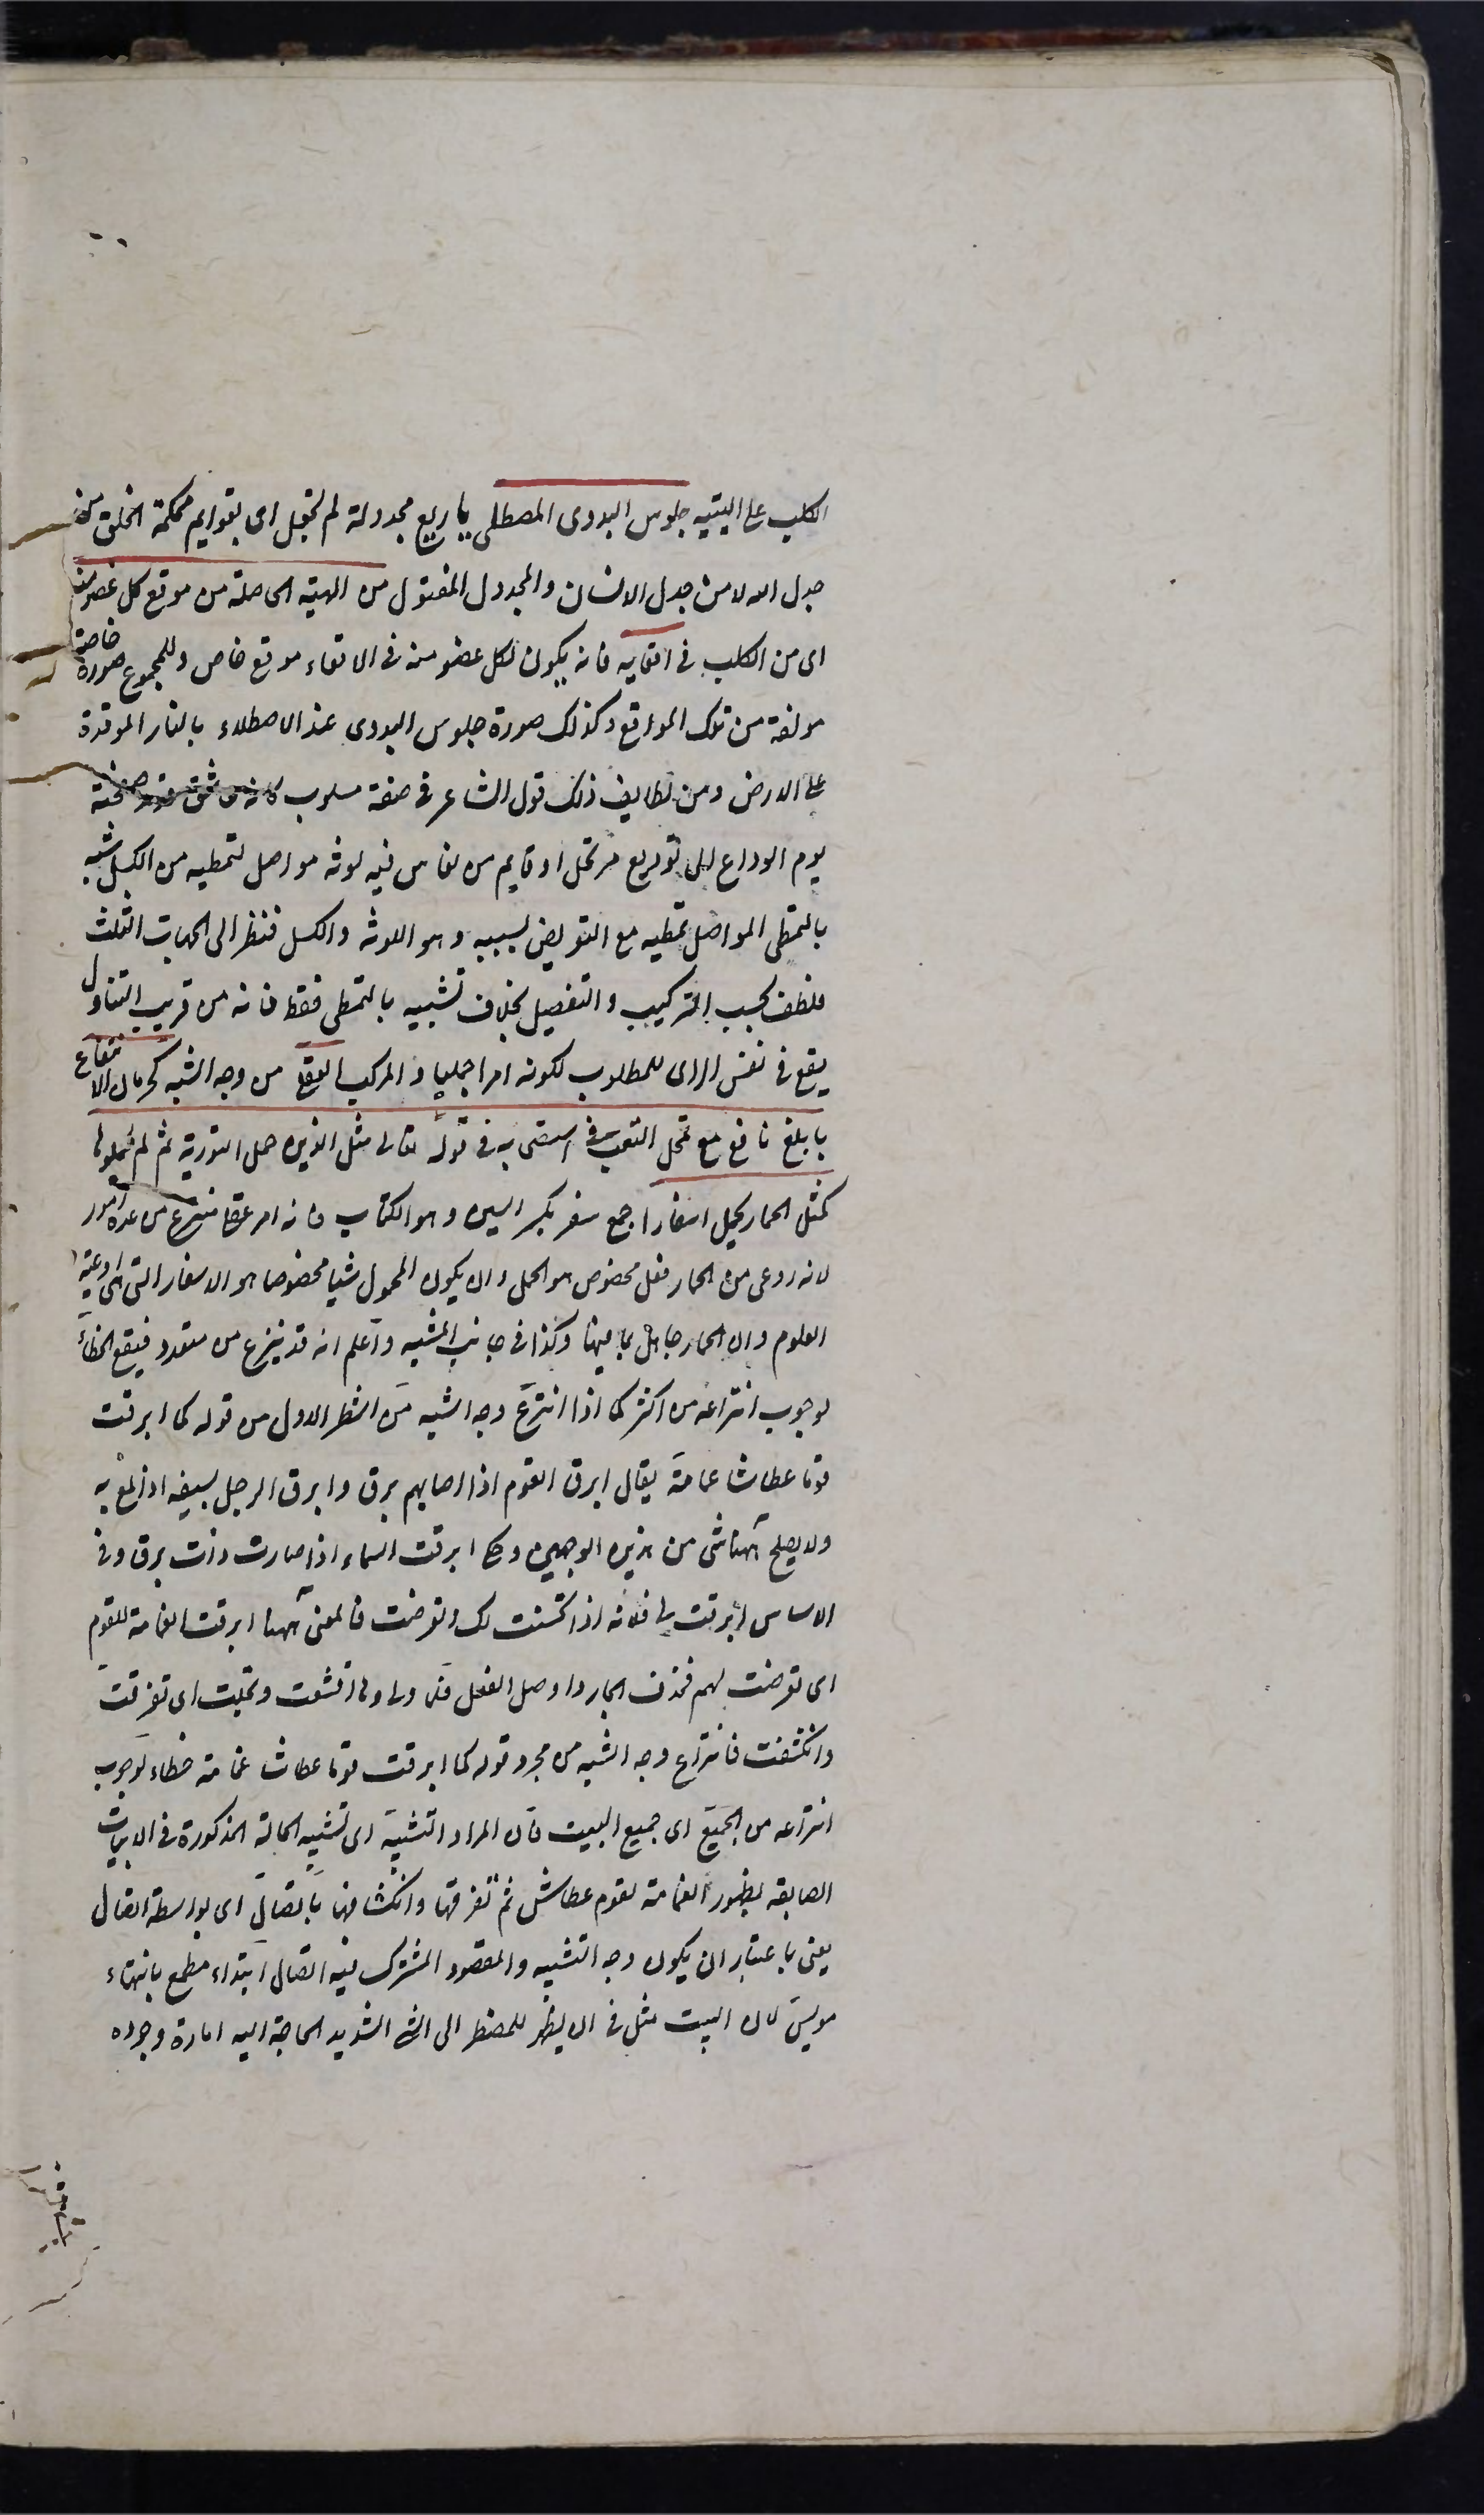 الكلب على اليتيه جلوس البدوى المصطلى باربع مجدولة لم تجدل اى بقوايم محكمة الخلق من
جدل الله لا من جدل الانسان والمجدول المفتول من الهيئة الحاصلة من موقع كل عضو منه
اى من الكلب فى اقعايه فانه يكون لكل عضو منه فى الاقعاء موقع خاص وللمجموع صورة خاصة
مولفة من تلك المواقع وكذلك صورة جلوس البدوى عند الاصطلاء بالنار الموقدة
على الارض ومن لطايف ذلك قول الشاعر فى صفة مصلوب كانه عاشق قد مد صفحته
يوم الوداع الى توديع مرتحل او قايم من نعاس فيه لوثه مواصل لتمطيه من الكسل شبه
بالتمطى المواصل تمطيه مع التعرض لسببه وهو اللوثه والكسل فنظر الى الجهات الثلث
فلطف بحسب التركيب والتفصيل بخلاف تشبيهه بالتمطى فقط فانه من قريب التناول
يقع فى نفس الراى للمطلوب لكونه امرا جمليا و المركب العقلى من وجه الشبه كحرمان الانتفاع
بابلغ نافع مع تحمل التعب فى استصحابه فى قوله تعالى مثل الذين حملوا التورية ثم لم يحملوها
كمثل الحمار يحمل اسفارا جمع سفر بكسر السين وهو الكتاب فانه امر عقلى منتزع من عدة امور
لانه روعى من الحمار فعل مخصوص هو الحمل وان يكون المحمول شيا مخصوصا هو الاسفار التى هى اوعية
العلوم وان الحمار جاهل بما فيها وكذا فى جانب المشبه واعلم انه قد ينتزع من متعدد فيقع الخطأ
لوجوب انتزاعه من اكثر كما اذا انتزع وجه الشبه من الشطر الاول من قوله كما ابرقت
قوما عطاشا غمامة يقال ابرق القوم اذا اصابهم برق وابرق الرجل بسيفه اذا لمع به
ولا يصلح ههنا شى من هذين الوجهين وحكى ابرقت السماء اذا صارت ذات برق وفى
الاساس ابرقت لى فلانه اذا تحسنت لك وتعرضت فالمعنى ههنا ابرقت الغمامة للقوم
اى تعرضت لهم فحذف الجار واوصل الفعل فلما راوها اقشعت وتجلت اى تفرقت
وانكشفت فانتزاع وجه الشبه من مجرد قوله كما ابرقت قوما عطاشا غمامة خطاء لوجوب
انتزاعه من الجميع اى جميع البيت فان المراد التشبيه اى تشبيه الحالة المذكورة فى الابيات
السابقه بظهور الغمامة لقوم عطاش ثم تفرقها وانكشافها باتصال اى بواسطة اتصال
يعنى باعتبار ان يكون وجه التشبيه والمقصود المشترك فيه اتصال ابتداء مطمع بانتهاء
مويس لان البيت مثل فى ان يظهر للمضطر الى الشى الشديد الحاجة اليه امارة وجوده